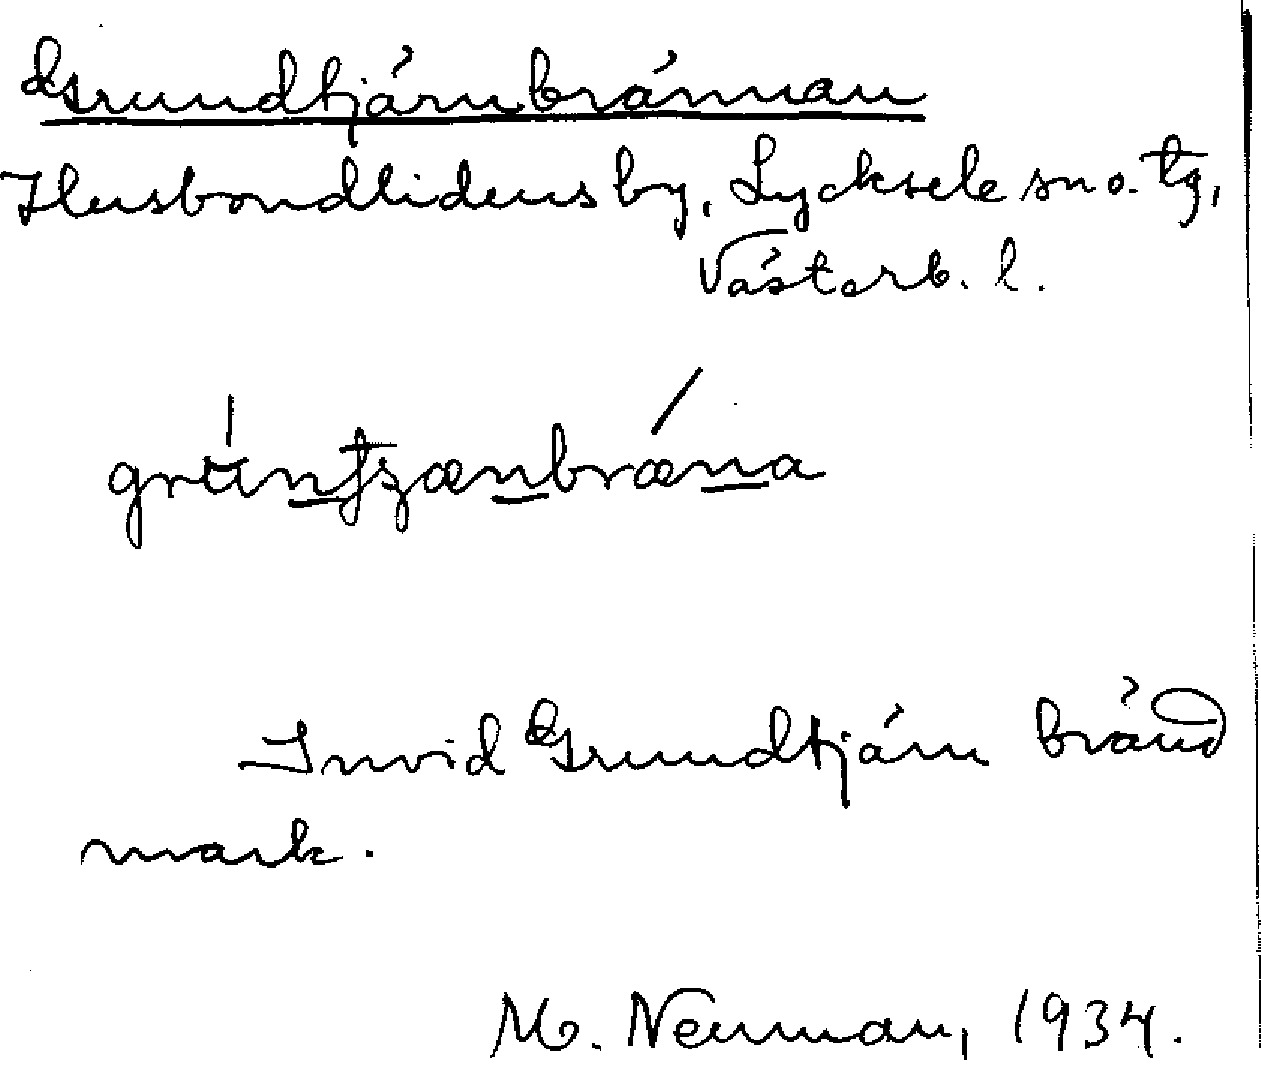 Grundtjärnbrännan
Husbondlidens by, Lycksele sn o. tg,
Västerb. l.
Invid Grundtjärn bränd
mark.
M. Neuman, 1934.